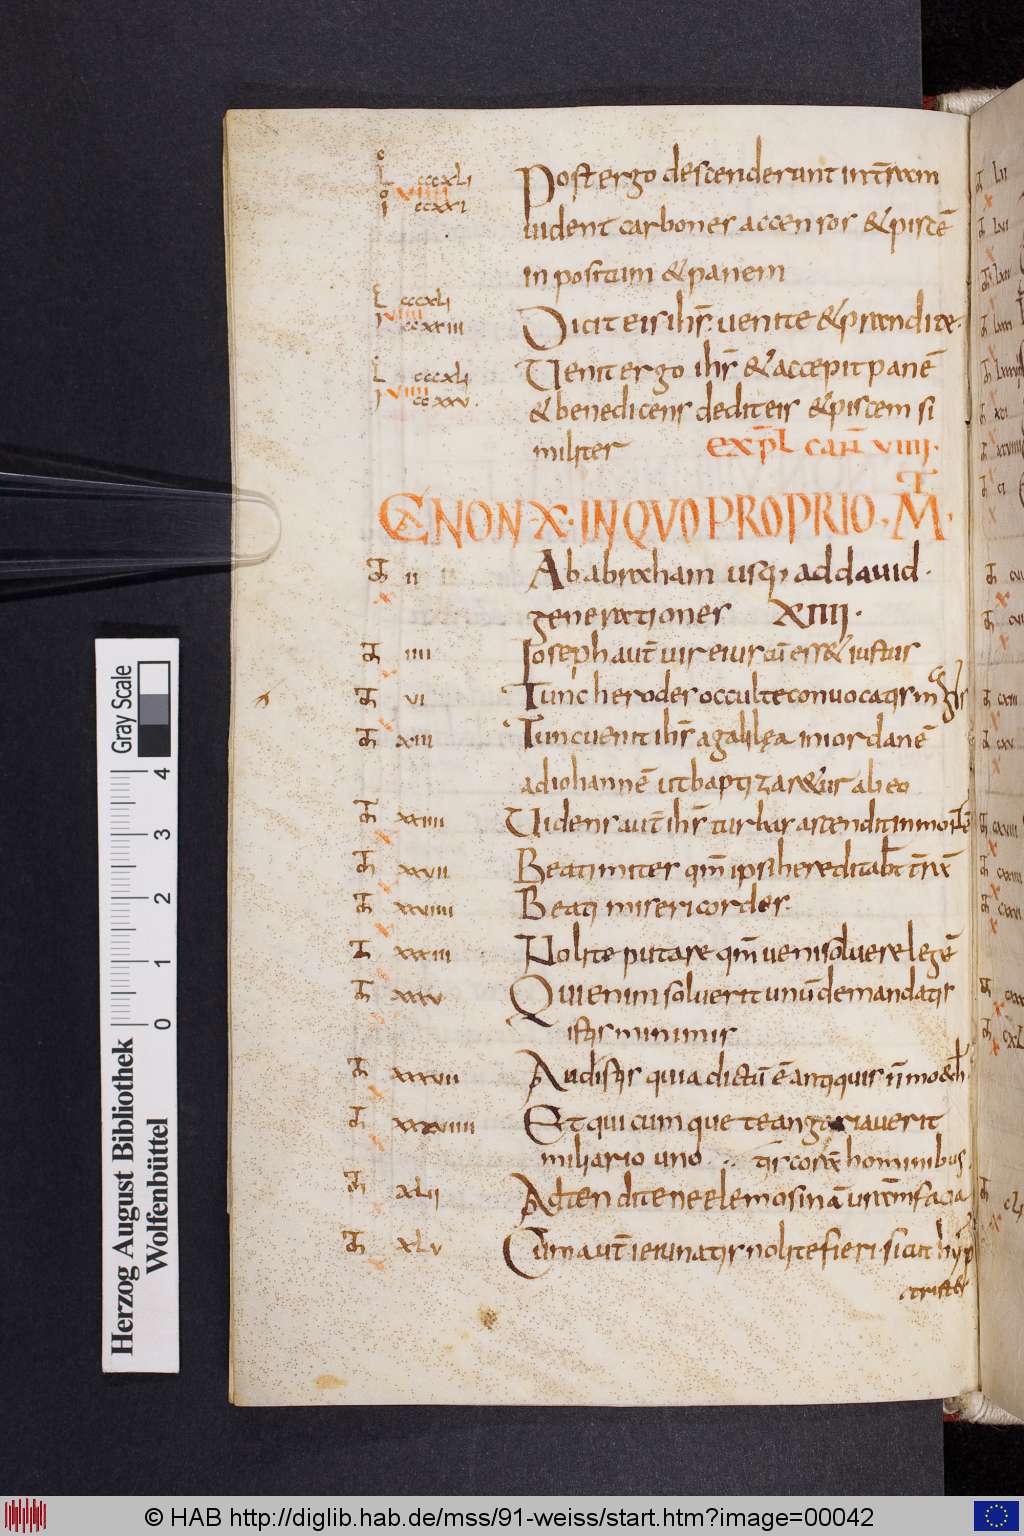 L cccxLi
viiii
i ccxxi
Post ergo descenderunt in tr̄am
uident carbones accensos &piscē
inpositum &panem
L cccxLi
viiii
i ccxxiii
Dicit eis ihs̄ uenite &prandite·
L cccxLi
viiii
i ccxxv·
Uenit ergo ihs̄ &accepit panē
&benedicens dedit eis &piscem si
militer expl̄ can̄ viiii·
CANON·X·IN QVO PROPRIO·MT·
Th ii Ab abraham usq; ad dauid·
x generationes XIIII·
Th iiii Ioseph aut̄ uir eius cū ess& iustus
Th vi Tunc herodes occulte conuocatis magis
Th xiii Tunc uenit ihs̄ a galilęa in iordanē
ad iohannē ut baptizar&ur ab eo
Th xxiiii Uidens aut̄ ihs̄ turbas ascendit in montē
Th xxvii Beati mites qm̄ ipsi hereditabt̄ tr̄a
Th xxviiii Beati misericordes·
Th xxxiii Nolite putare qm̄ ueni soluere legē
Th xxxv Qui enim soluerit unū demandatis
istis minimis
Th xxxvii Audistis quia dictū ē antiquis n̄ moechb
Th xxxviiii Et qui cumque te angariauerit
miliario uno tis corā hominibus
Th xLii Adtendite ne elemosinā uram̄ facia
Th xLv Cum aut̄ ieiunatis nolite fieri sicut hyp
critę
Herzog August Bibliothek
Wolfenbüttel
Gray Scale
0 1 2 3 4
© HAB http://diglib.hab.de/mss/91-weiss/start.htm?image=00042